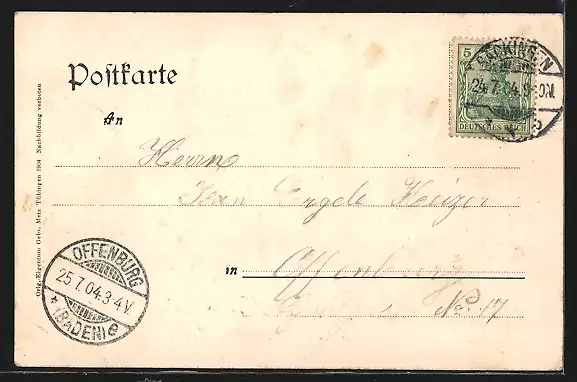 Postkarte
An
Herrn
Engele Heizer
in Offenburg
No. 17
5
DEUTSCHES REICH
SÄCKINGEN
24.7.04.9-10N.
OFFENBURG
25.7.04.3-4V.
* (BADEN) e
Orig.-Eigentum Gebr. Metz Tübingen 1904 Nachbildung verboten